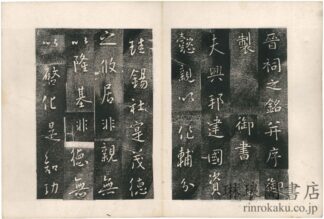 晉祠之銘并序御
製 御書
夫興邦建國資
懿親以作輔分
珪錫社寔茂德
之攸居非親無
以隆基非德無
以啓化是知功
書店
rinrokaku.co.jp